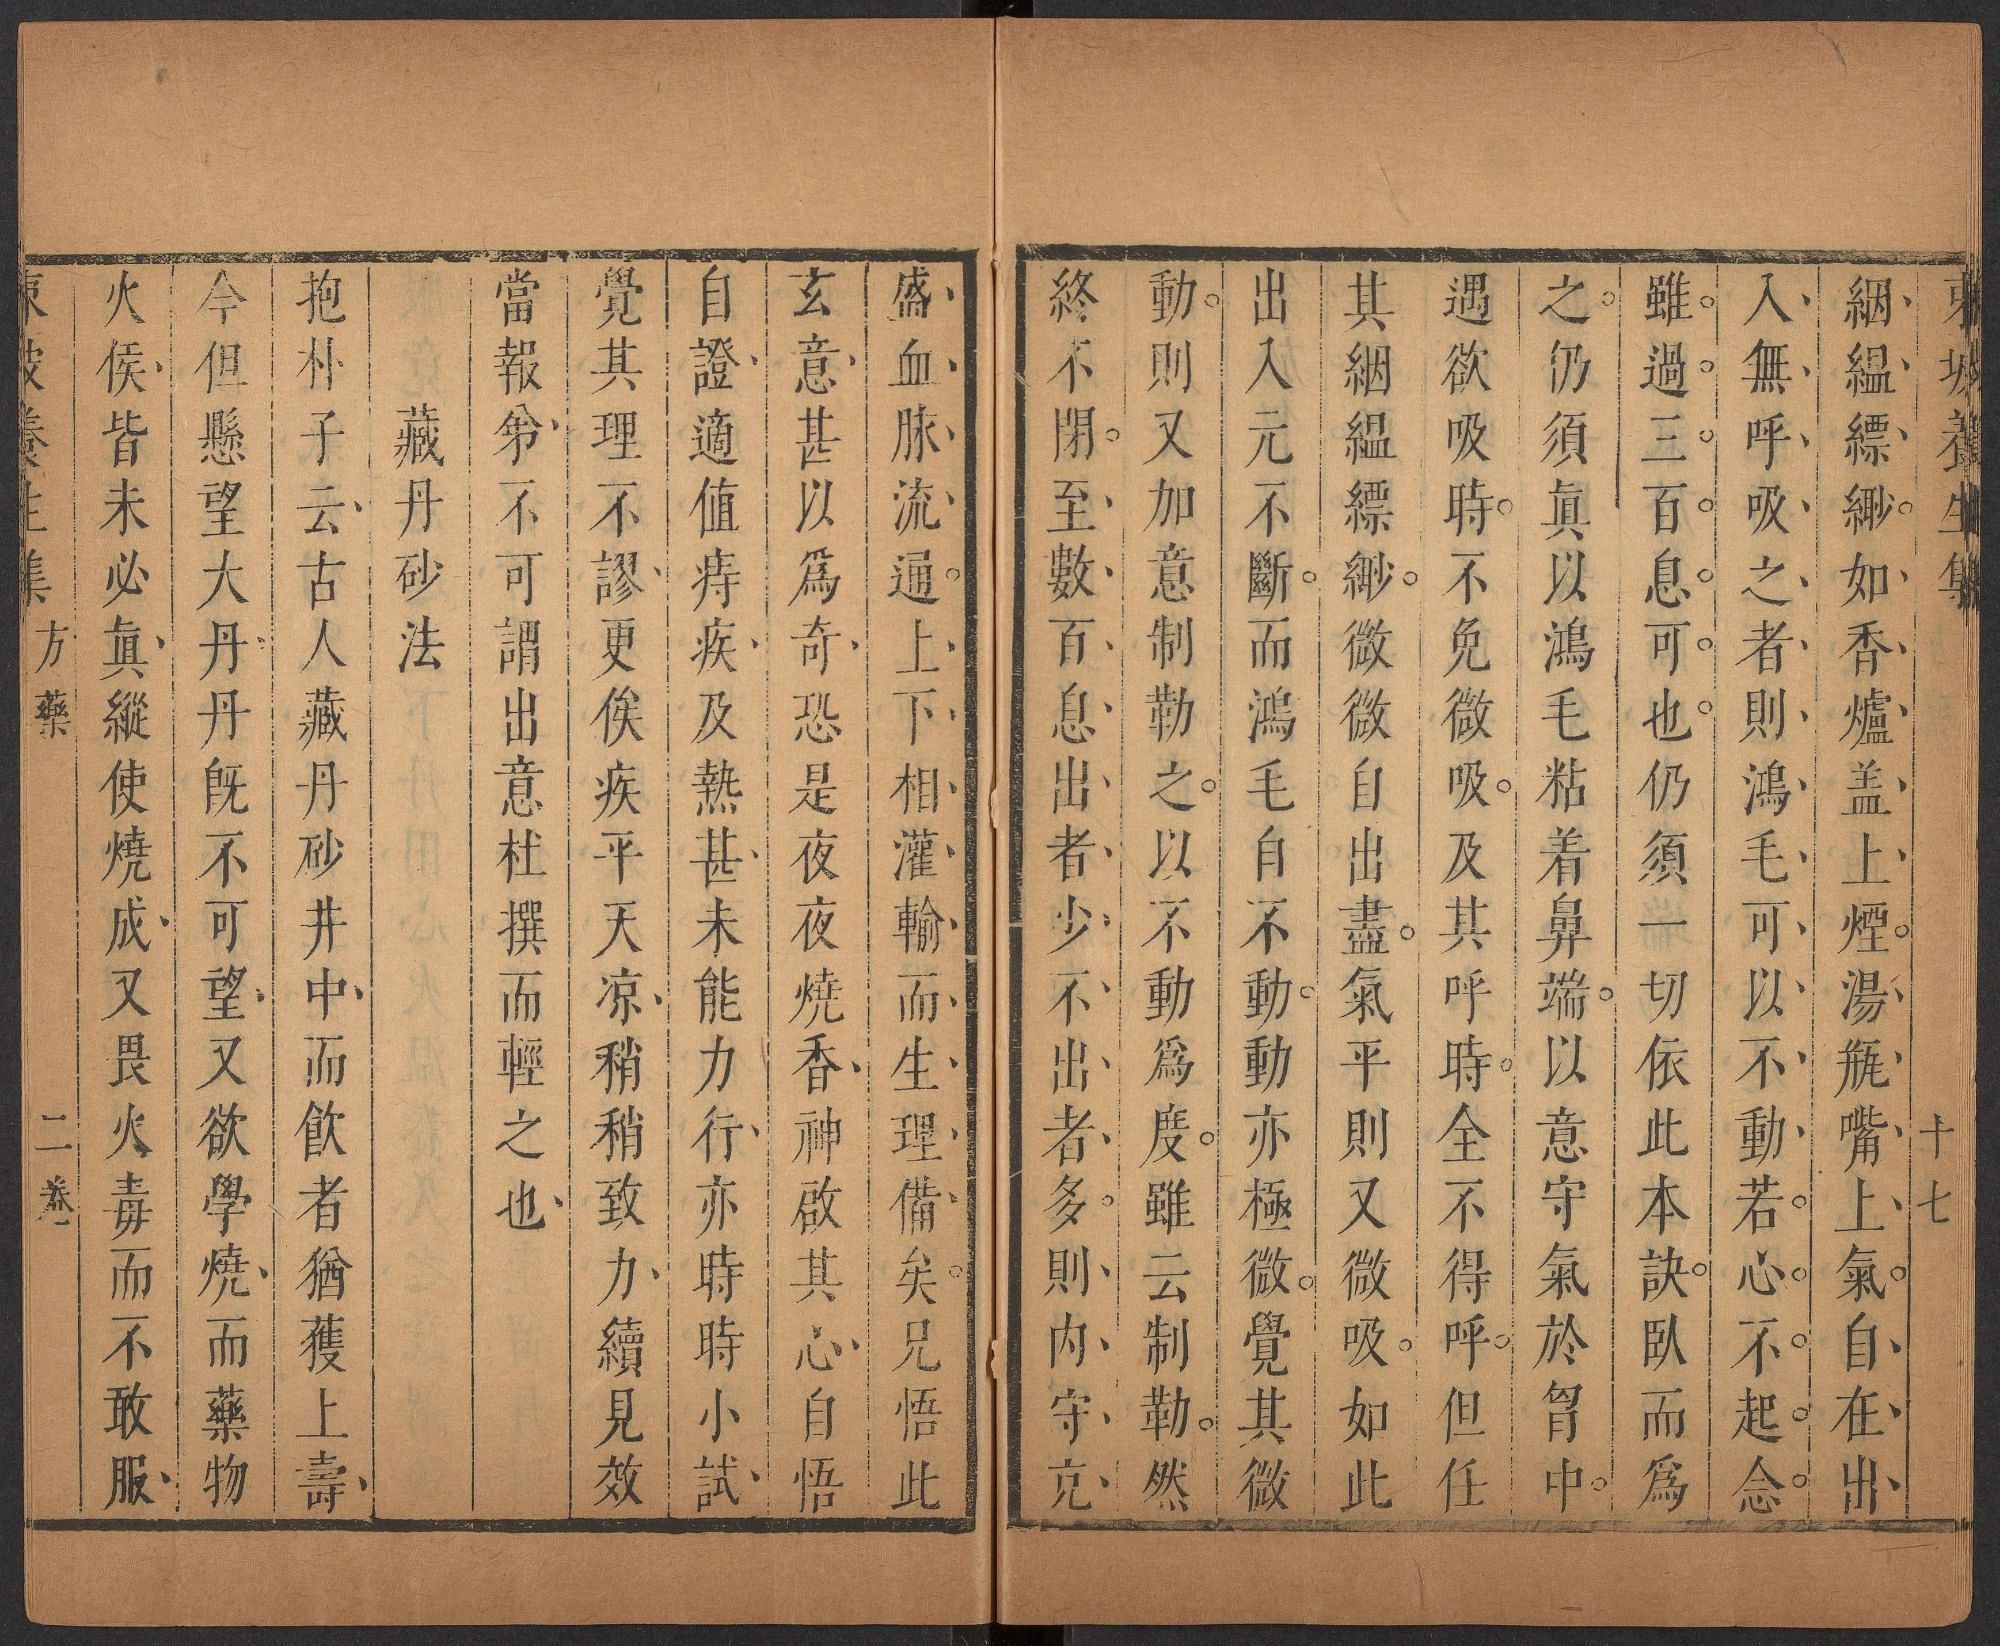 東坡養生集 十七
絪縕縹緲如香爐盖上煙湯瓶嘴上氣自在出
入無呼吸之者則鴻毛可以不動若心不起念
雖過三百息可也仍須一切依此本訣臥而爲
之仍須眞以鴻毛粘着鼻端以意守氣於胷中
遇欲吸時不免微吸及其呼時全不得呼但任
其絪縕縹緲微微自出盡氣平則又微吸如此
出入元不斷而鴻毛自不動動亦極微覺其微
動則又加意制勒之以不動爲度雖云制勒然
終不閉至數百息出者少不出者多則內守充
盛血脉流通上下相灌輸而生理備矣兄悟此
玄意甚以爲奇恐是夜夜燒香神啟其心自悟
自證適值痔疾及熱甚未能力行亦時時小試
覺其理不謬更俟疾平天凉稍稍致力續見效
當報㢧不可謂出意杜撰而輕之也
藏丹砂法
抱朴子云古人藏丹砂井中而飮者猶獲上壽
今但懸望大丹丹旣不可望又欲學燒而藥物
火侯皆未必眞縱使燒成又畏火毒而不敢服
東坡養生集 方藥 二卷